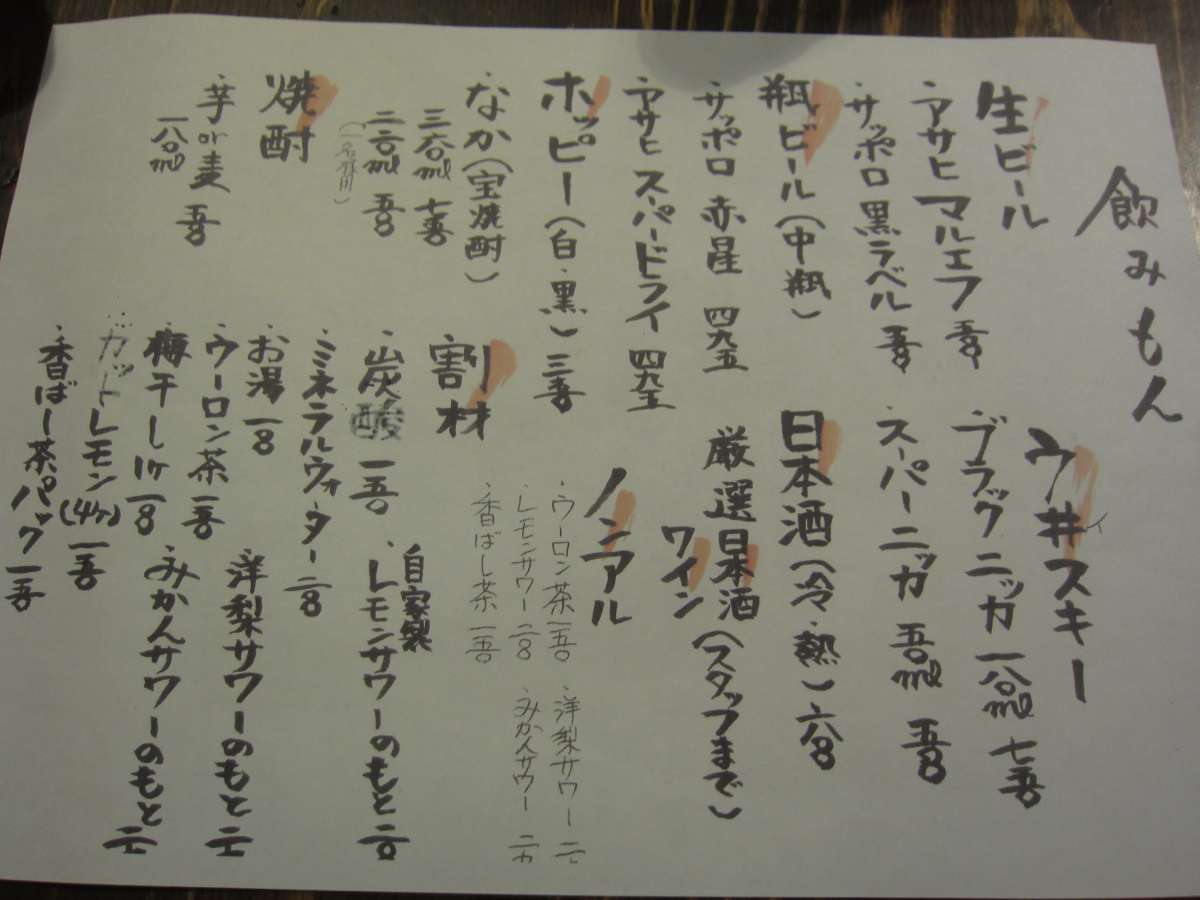 飲みもん
生ビール
・アサヒ マルエフ 五五〇
・サッポロ 黒ラベル 五五〇
瓶ビール(中瓶)
・サッポロ 赤星 四九五
・アサヒ スーパードライ 四九五
ホッピー(白・黒) 三五〇
・なか(宝焼酎)
三六〇ml 七五〇
二二〇ml 五五〇
焼酎
・芋or麦
一八〇ml 五五〇
ウ井スキー
イ
・ブラックニッカ 一八〇ml 七五〇
・スーパーニッカ 五〇ml 五五〇
日本酒(冷・熱) 六八〇
厳選日本酒
ワイン
(スタッフまで)
ノンアル
・ウーロン茶 一五〇
・レモンサワー 二二〇
・香ばし茶 一五〇
・洋梨サワー
・みかんサワー
割材
・炭酸 一五〇
・ミネラルウォーター
・お湯
・ウーロン茶 一五〇
・梅干し1ケ
・カットレモン(4ケ) 一五〇
・香ばし茶パック 一五〇
自家製
・レモンサワーのもと
・洋梨サワーのもと
・みかんサワーのもと